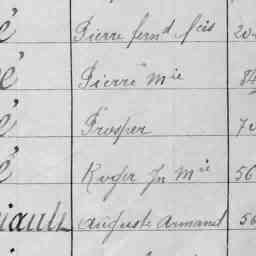 é Pierre fern^d f^cis 20
é Pierre M^ie 84
é Prosper 70
é Roger Jn M^ie 56
iault Auguste Armand 56